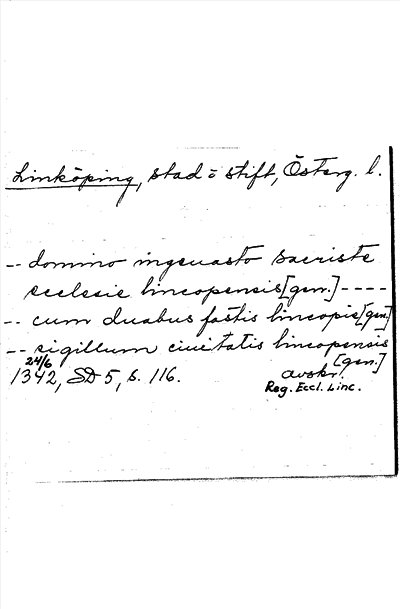 Linköping, stad o stift, Österg. l.
-- domino ingeuasto sacriste
ecclesie lincopensis [gen.] ----
-- cum duabus fastis lincopis [gen.]
-- sigillum ciuitatis lincopensis
[gen.]
24/6
1342, SD 5, s. 116.
avskr.
Reg. Eccl. Linc.